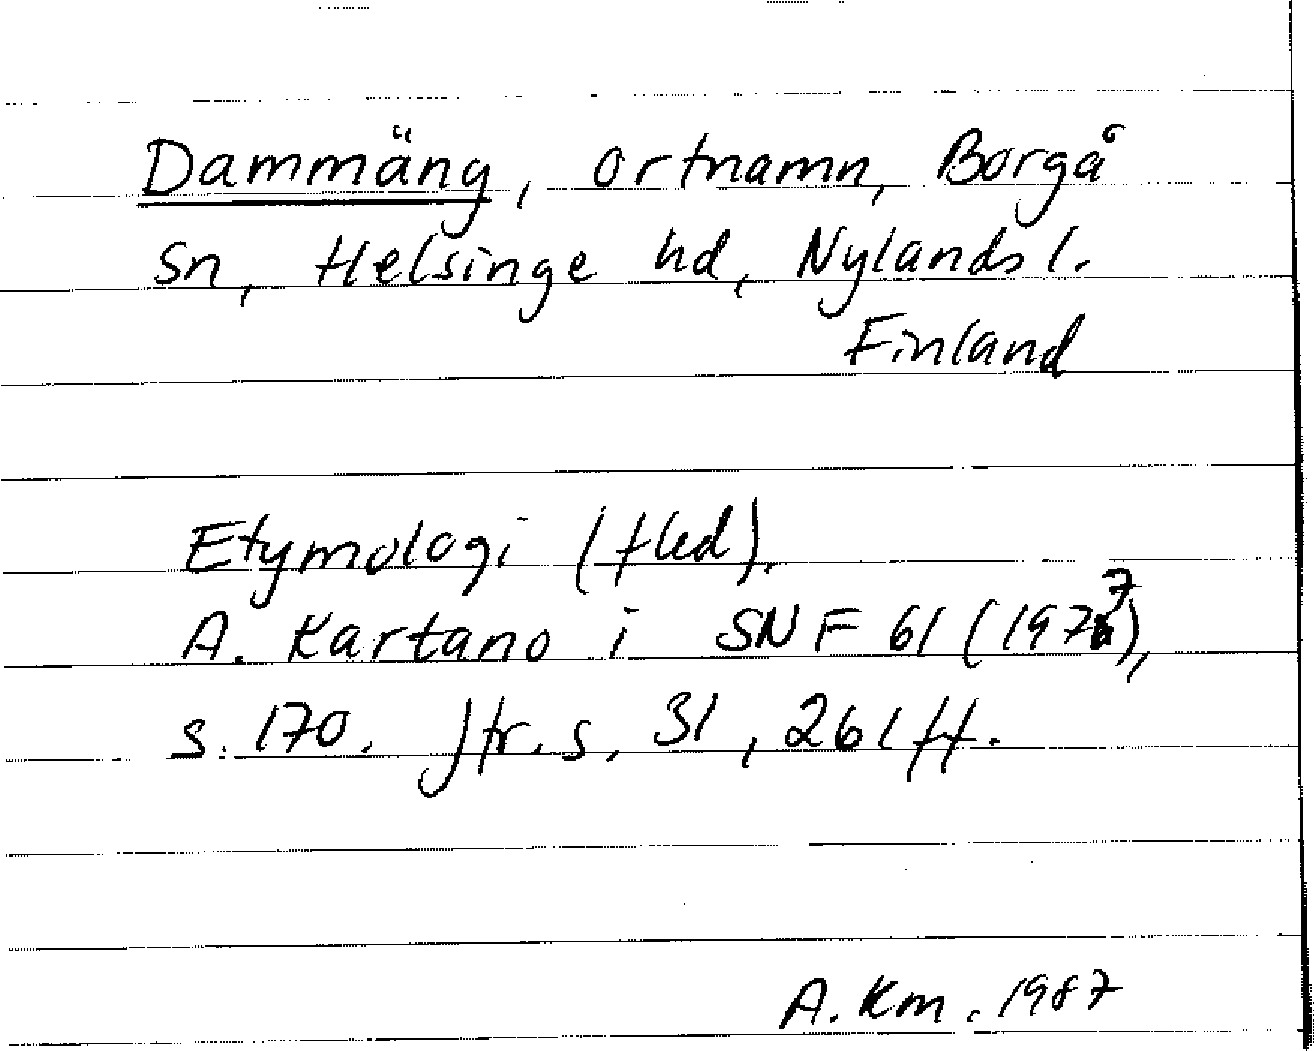 Dammäng, ortnamn, Borgå
sn, Helsinge hd, Nylands l.
Finland
Etymologi (fled).
A. Kartano i SNF 61 (1977),
s. 170. Jfr. s. 31, 261 ff.
A. Km. 1987